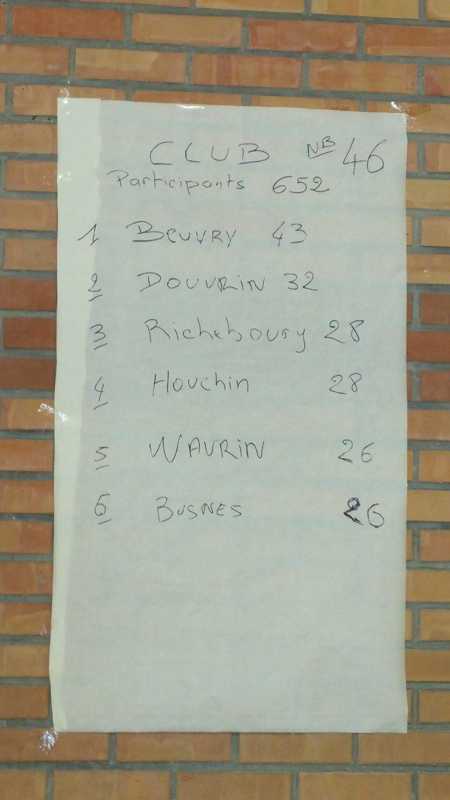 CLUB NB 46
Participants 652
1 Beuvry 43
2 DOUVRIN 32
3 Richebourg 28
4 Houchin 28
5 WAVRIN 26
6 BUSNES 26